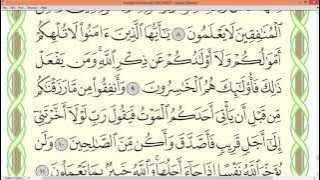 ٱلْمُنَٰفِقِينَ لَا يَعْلَمُونَ ٨ يَٰٓأَيُّهَا ٱلَّذِينَ ءَامَنُوا۟ لَا تُلْهِكُمْ
أَمْوَٰلُكُمْ وَلَآ أَوْلَٰدُكُمْ عَن ذِكْرِ ٱللَّهِ وَمَن يَفْعَلْ
ذَٰلِكَ فَأُو۟لَٰٓئِكَ هُمُ ٱلْخَٰسِرُونَ ٩ وَأَنفِقُوا۟ مِن مَّا رَزَقْنَٰكُم
مِّن قَبْلِ أَن يَأْتِىَ أَحَدَكُمُ ٱلْمَوْتُ فَيَقُولَ رَبِّ لَوْلَآ أَخَّرْتَنِىٓ
إِلَىٰٓ أَجَلٍ قَرِيبٍ فَأَصَّدَّقَ وَأَكُن مِّنَ ٱلصَّٰلِحِينَ ١٠ وَلَن
يُؤَخِّرَ ٱللَّهُ نَفْسًا إِذَا جَآءَ أَجَلُهَا وَٱللَّهُ خَبِيرٌۢ بِمَا تَعْمَلُونَ ١١